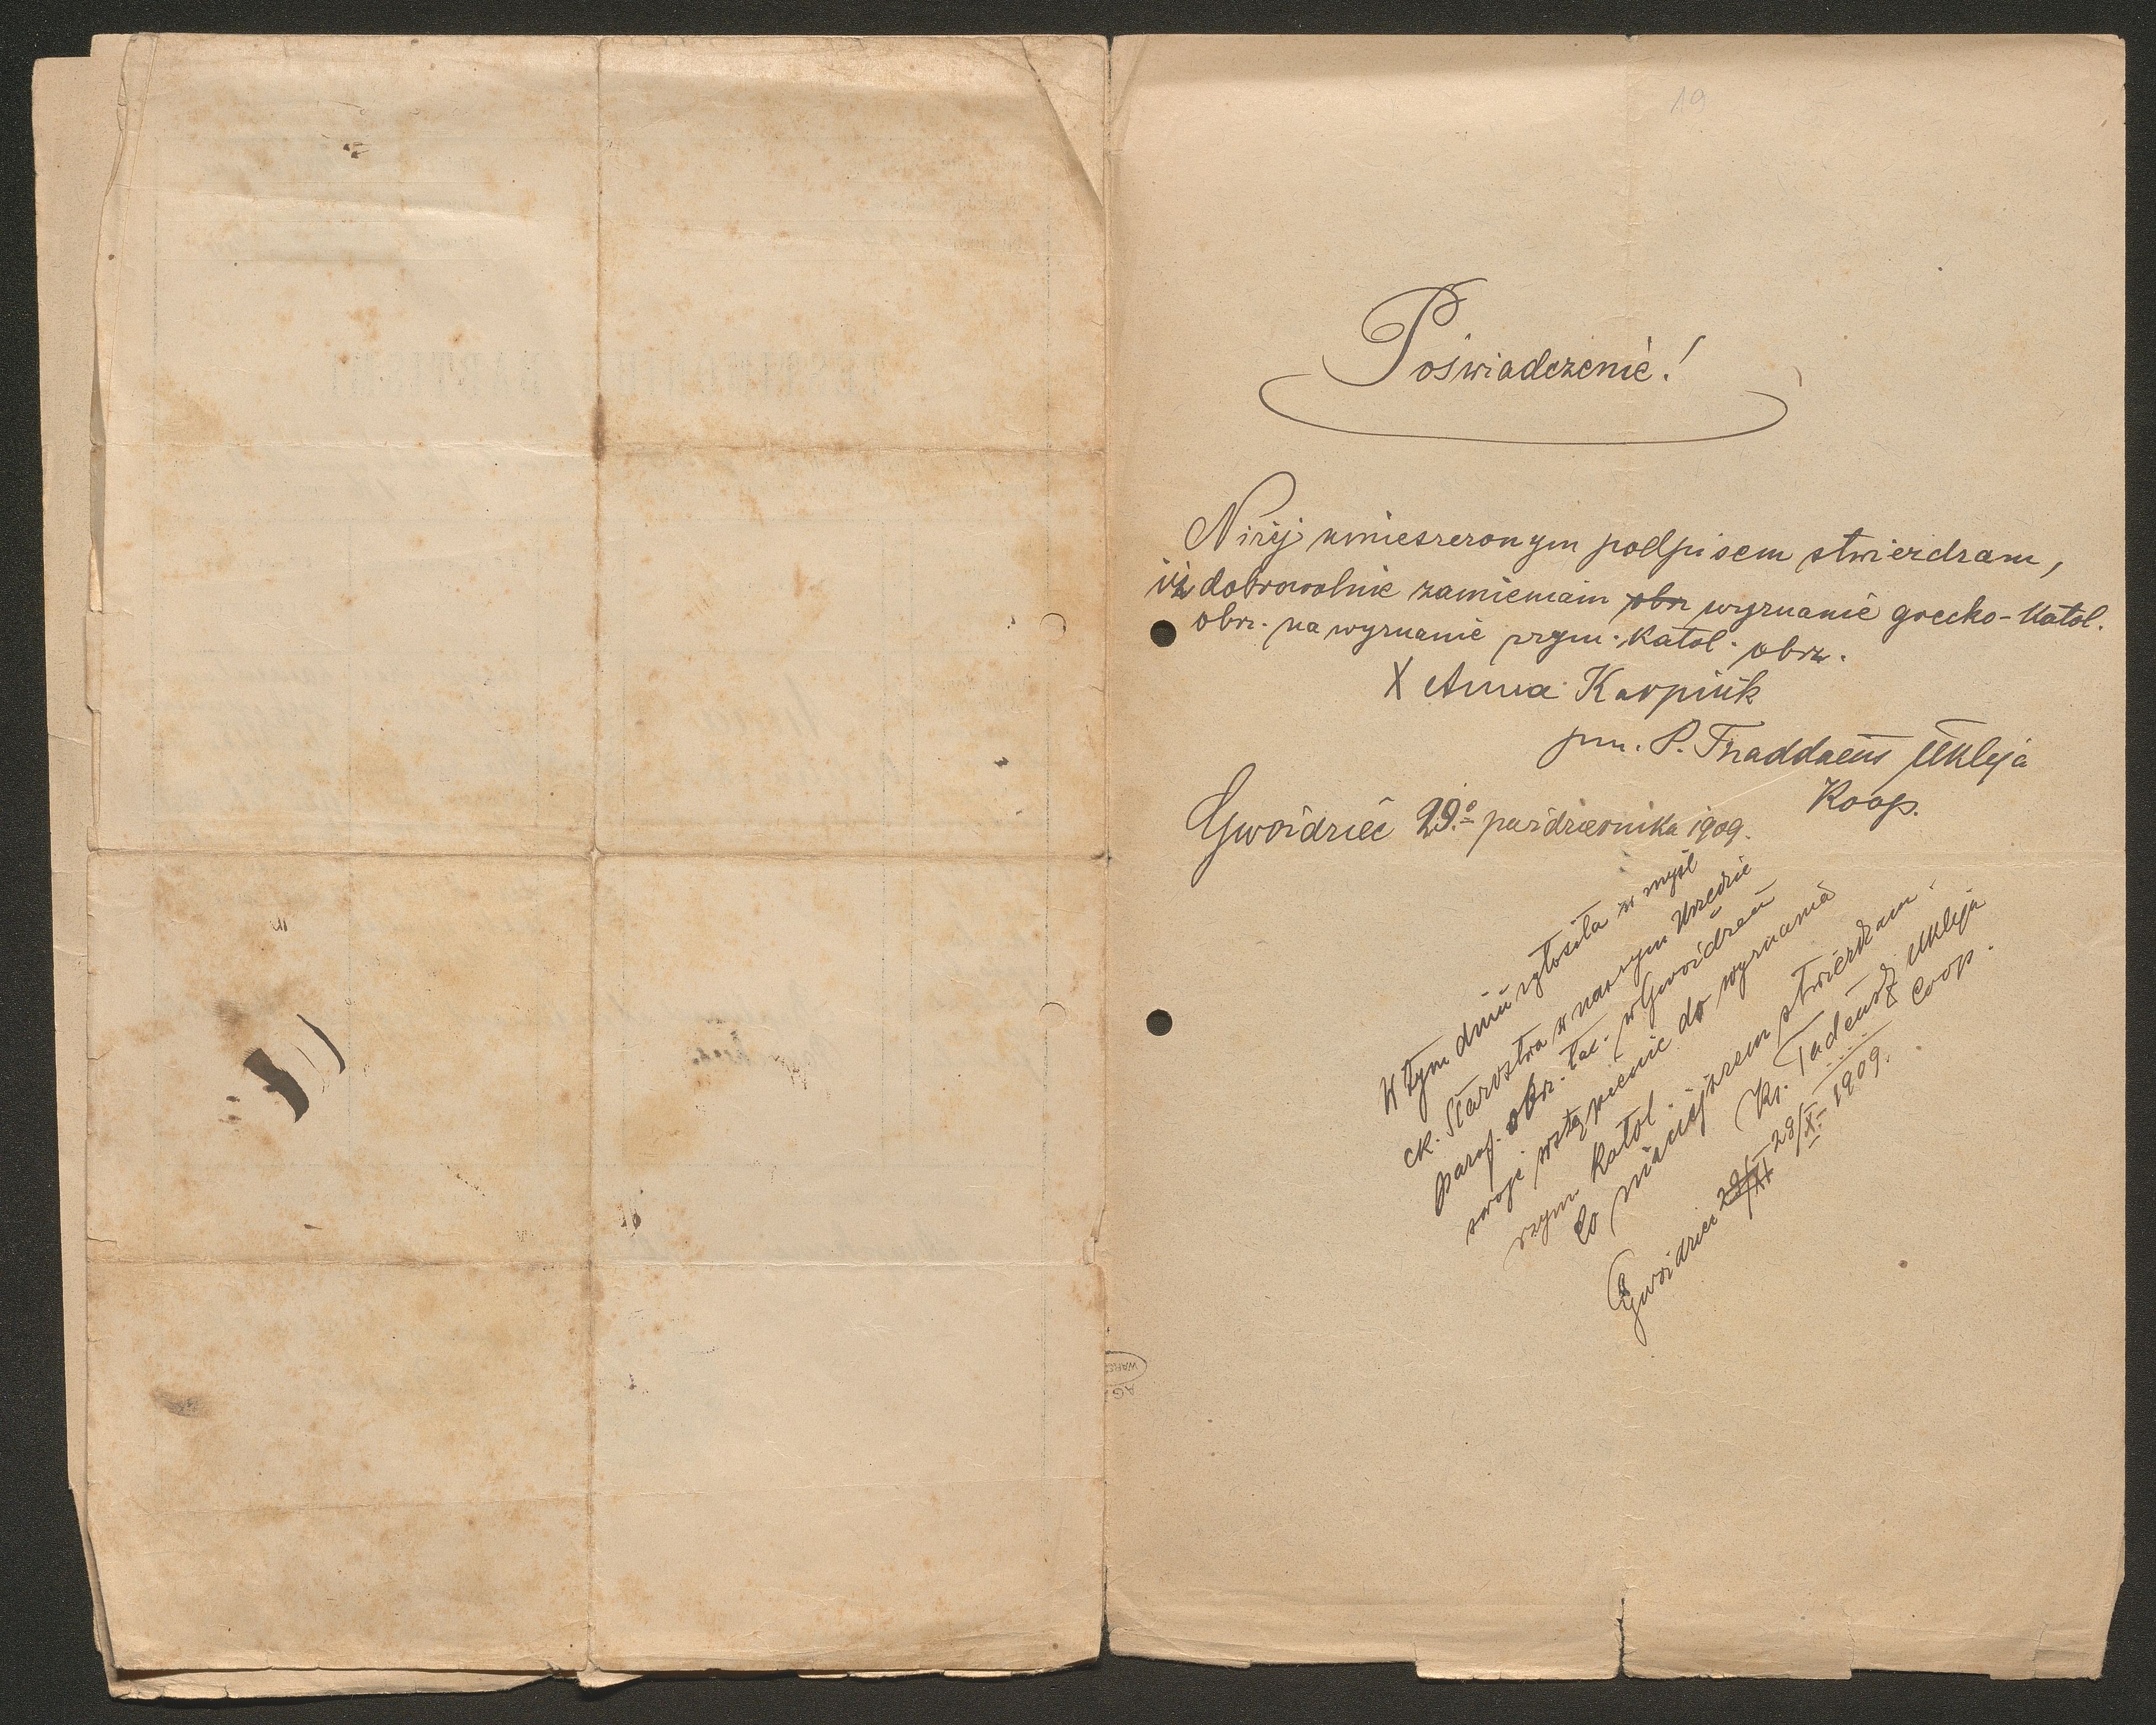 19
Poświadczenie!
Niżej umieszczonym podpisem stwierdzam,
iż dobrowolnie zamieniam obrz wyznanie grecko-katol.
obrz. na wyznanie rzym. katol. obrz.
X Anna Karpiuk
pm. P. Thaddaeus Ukleja
Koop.
Gwoździec 29.º października 1909.
W tym dniu zgłosiła w myśl
ck. Starostwa w naszym Urzedzie
paraf. obrz. łac. w Gwoźdzcu
swoje wstąpienie do wyznania
rzym. katol.
Co niniejszem stwierdzam
Ks. Tadeusz Ukleja
Coop.
Gwoździec 29/XI 29/X. 1909.